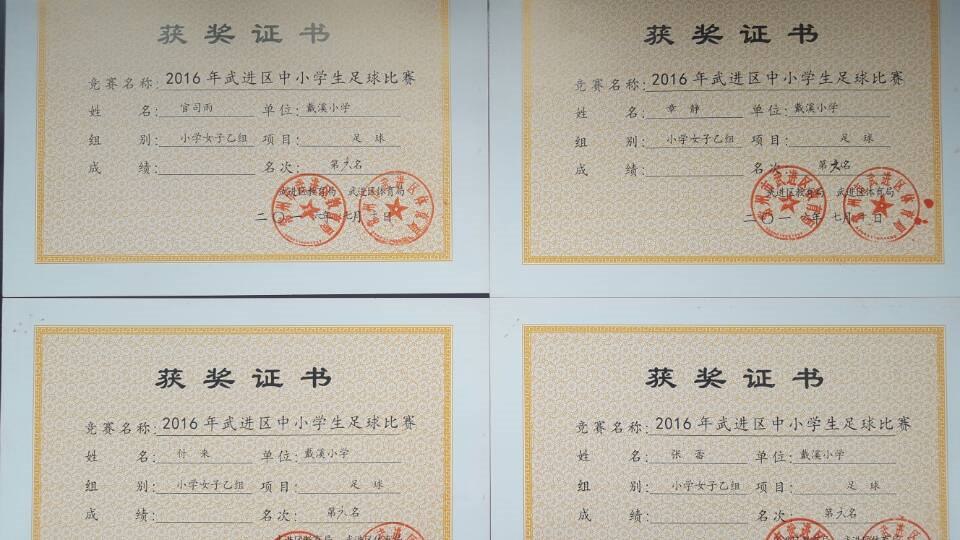 获奖证书
竞赛名称: 2016年武进区中小学生足球比赛
姓 名: 官司雨 单位: 戴溪小学
组 别: 小学女子乙组 项目: 足 球
成 绩: 名次: 第六名
武进区教育局 武进区体育局
二〇一六年七月 日
获奖证书
竞赛名称: 2016年武进区中小学生足球比赛
姓 名: 章 静 单位: 戴溪小学
组 别: 小学女子乙组 项目: 足 球
成 绩: 名次: 第六名
武进区教育局 武进区体育局
二〇一六年七月 日
获奖证书
竞赛名称: 2016年武进区中小学生足球比赛
姓 名: 付 来 单位: 戴溪小学
组 别: 小学女子乙组 项目: 足 球
成 绩: 名次: 第六名
武进区教育局 武进区体育局
获奖证书
竞赛名称: 2016年武进区中小学生足球比赛
姓 名: 张 蕾 单位: 戴溪小学
组 别: 小学女子乙组 项目: 足 球
成 绩: 名次: 第六名